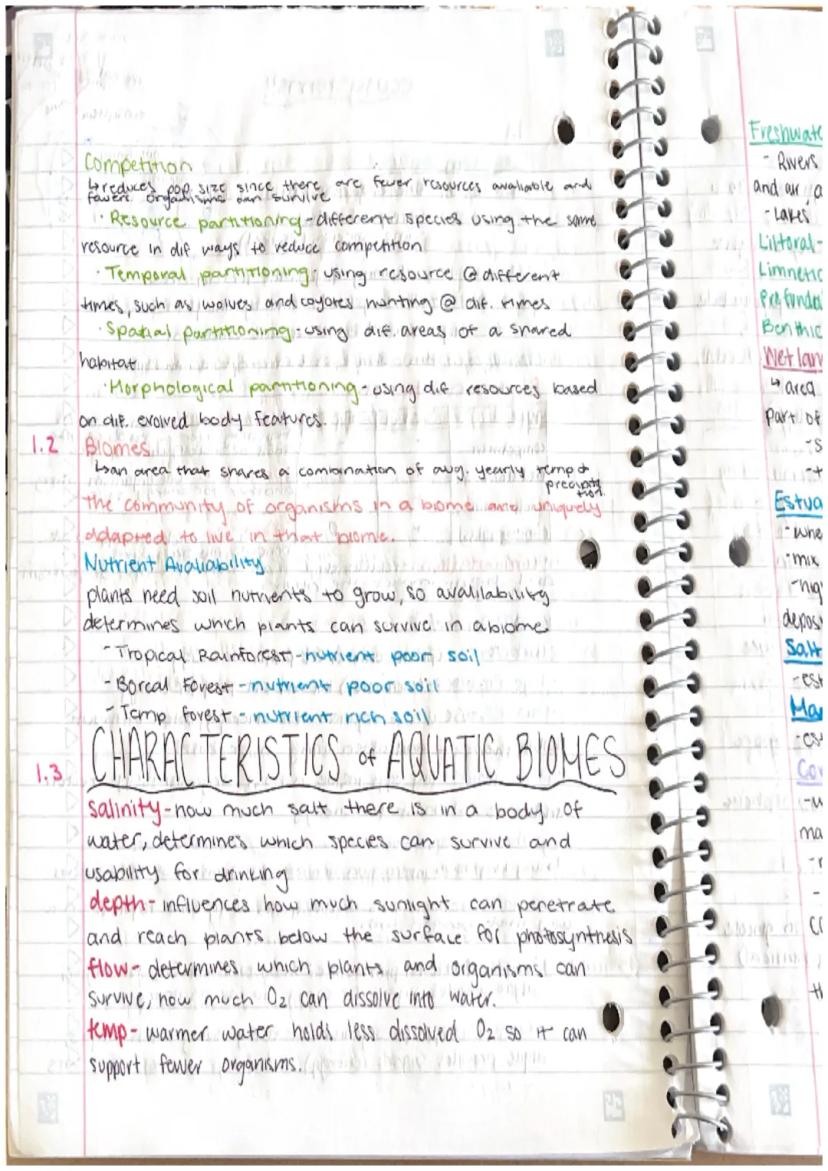 Competition
↳reduces pop size since there are fewer resources avaliable and
fewer organisms can survive
· Resource partitioning - different species using the same
resource in dif ways to reduce competition
· Temporal partitioning: using resource @ different
times, such as wolves and coyotes hunting @ dif. times
· Spatial partitioning: using dif. areas of a shared
habitat
· Morphological partitioning - using dif resources based
on dif. evolved body features.
1.2 Biomes
↳an area that shares a combination of avg. yearly temp &
precipitation
the community of organisms in a biome are uniquely
adapted to live in that biome.
Nutrient Avaliability
plants need soil nutrients to grow, so availability
determines which plants can survive in a biome
- Tropical Rainforest - nutrient poor soil
- Boreal Forest - nutrient poor soil
- Temp forest - nutrient rich soil
1.3 CHARACTERISTICS of AQUATIC BIOMES
salinity - how much salt there is in a body of
water, determines which species can survive and
usability for drinking
depth - influences how much sunlight can penetrate
and reach plants below the surface for photosynthesis
flow - determines which plants and organisms can
survive, how much O₂ can dissolve into water.
temp - warmer water holds less dissolved O₂ so it can
support fewer organisms.
Freshwate
- Rivers
and air, a
- Lakes
Littoral -
Limnetic
Profunda
Benthic
Wetlan
↳ area
part of
- s
- t
Estua
- whe
- mix
- hig
depos
Salt
- est
Ma